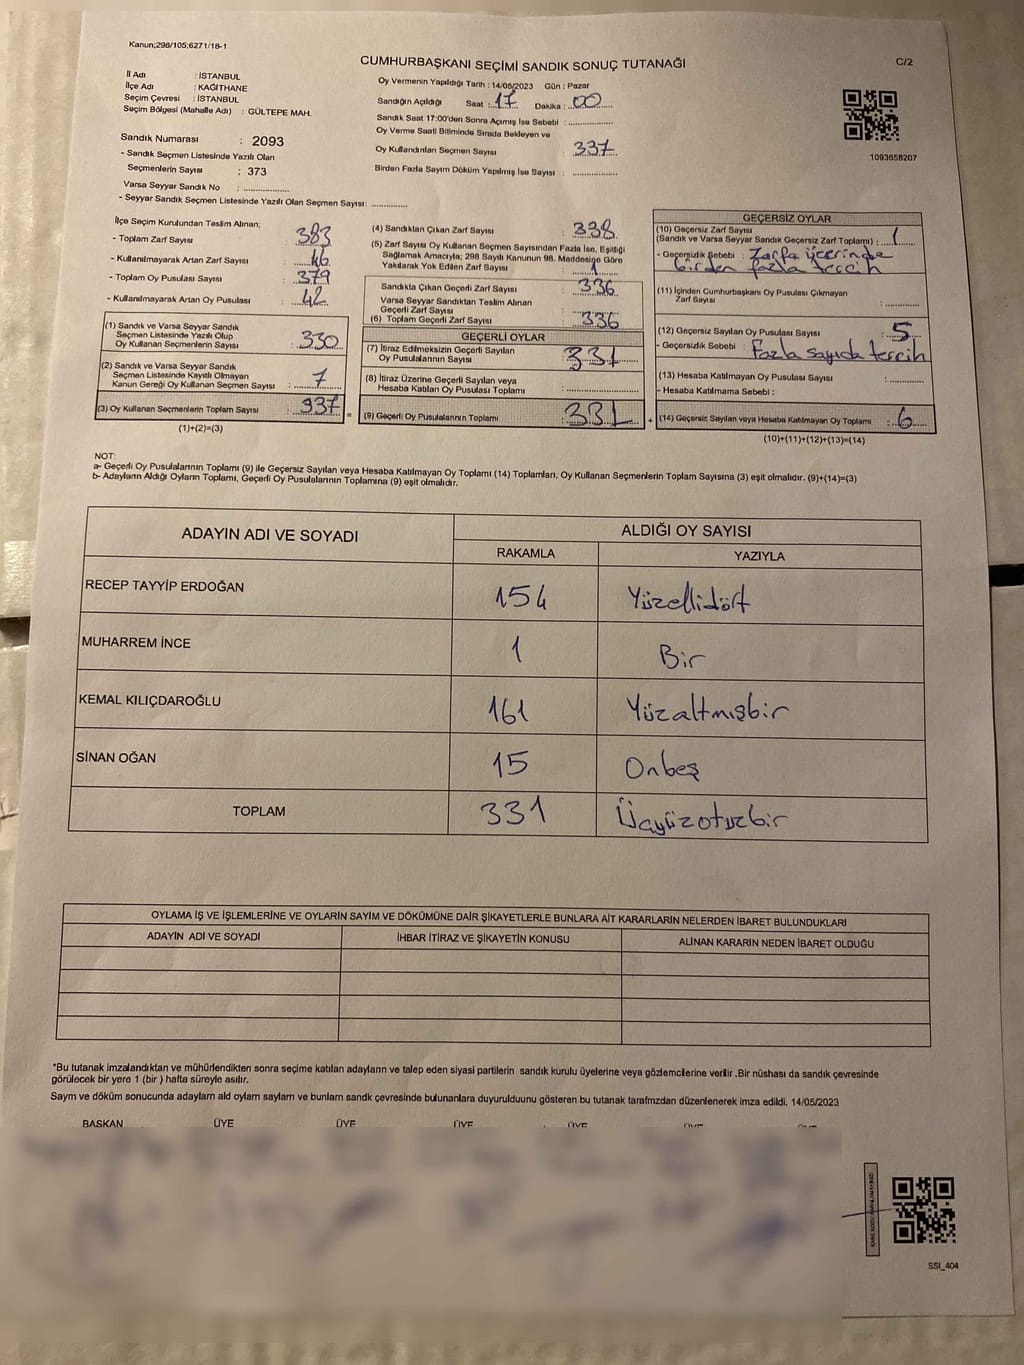 Kanun;298/105;6271/16-1
CUMHURBAŞKANI SEÇİMİ SANDIK SONUÇ TUTANAĞI
C/2
İl Adı : İSTANBUL
İlçe Adı : KAĞITHANE
Seçim Çevresi : İSTANBUL
Seçim Bölgesi (Mahalle Adı) : GÜLTEPE MAH.
Sandık Numarası : 2093
- Sandık Seçmen Listesinde Yazılı Olan
Seçmenlerin Sayısı : 373
Varsa Seyyar Sandık No :
- Seyyar Sandık Seçmen Listesinde Yazılı Olan Seçmen Sayısı:
Oy Vermenin Yapıldığı Tarih : 14/05/2023 Gün : Pazar
Sandığın Açıldığı Saat : 17 Dakika : 00
Sandık Saat 17:00'den Sonra Açımış İse Sebebi :
Oy Verme Saati Bitiminde Sırada Bekleyen ve
Oy Kullandırılan Seçmen Sayısı 337
Birden Fazla Sayım Döküm Yapılmış İse Sayısı :
1093658207
İlçe Seçim Kurulundan Teslim Alınan;
- Toplam Zarf Sayısı : 383
- Kullanılmayarak Artan Zarf Sayısı : 46
- Toplam Oy Pusulası Sayısı : 379
- Kullanılmayarak Artan Oy Pusulası : 42
(1) Sandık ve Varsa Seyyar Sandık
Seçmen Listesinde Yazılı Olup
Oy Kullanan Seçmenlerin Sayısı : 330
(2) Sandık ve Varsa Seyyar Sandık
Seçmen Listesinde Kayıtlı Olmayan
Kanun Gereği Oy Kullanan Seçmen Sayısı : 7
(3) Oy Kullanan Seçmenlerin Toplam Sayısı : 337 =
(1)+(2)=(3)
(4) Sandıktan Çıkan Zarf Sayısı : 338
(5) Zarf Sayısı Oy Kullanan Seçmen Sayısından Fazla İse, Eşitliği
Sağlamak Amacıyla; 298 Sayılı Kanunun 98. Maddesine Göre
Yakılarak Yok Edilen Zarf Sayısı : 1
Sandıkta Çıkan Geçerli Zarf Sayısı : 336
Varsa Seyyar Sandıktan Teslim Alınan
Geçerli Zarf Sayısı :
(6) Toplam Geçerli Zarf Sayısı : 336
GEÇERLİ OYLAR
(7) İtiraz Edilmeksizin Geçerli Sayılan
Oy Pusulasının Sayısı : 331
(8) İtiraz Üzerine Geçerli Sayılan veya
Hesaba Katılan Oy Pusulası Toplamı :
(9) Geçerli Oy Pusulalarının Toplamı : 331 +
GEÇERSİZ OYLAR
(10) Geçersiz Zarf Sayısı
(Sandık ve Varsa Seyyar Sandık Geçersiz Zarf Toplamı) : 1
- Geçersizlik Sebebi : Zarfa üzerinde
birden fazla tercih
(11) İçinden Cumhurbaşkanı Oy Pusulası Çıkmayan
Zarf Sayısı :
(12) Geçersiz Sayılan Oy Pusulası Sayısı : 5
- Geçersizlik Sebebi : Fazla sayıda tercih
(13) Hesaba Katılmayan Oy Pusulası Sayısı :
- Hesaba Katılmama Sebebi :
(14) Geçersiz Sayılan veya Hesaba Katılmayan Oy Toplamı : 6
(10)+(11)+(12)+(13)=(14)
NOT:
a- Geçerli Oy Pusulalarının Toplamı (9) ile Geçersiz Sayılan veya Hesaba Katılmayan Oy Toplamı (14) Toplamları, Oy Kullanan Seçmenlerin Toplam Sayısına (3) eşit olmalıdır. (9)+(14)=(3)
b- Adayların Aldığı Oyların Toplamı, Geçerli Oy Pusulalarının Toplamına (9) eşit olmalıdır.
ADAYIN ADI VE SOYADI
ALDIĞI OY SAYISI
RAKAMLA YAZIYLA
RECEP TAYYİP ERDOĞAN 154 Yüzellidört
MUHARREM İNCE 1 Bir
KEMAL KILIÇDAROĞLU 161 Yüzaltmışbir
SİNAN OĞAN 15 Onbeş
TOPLAM 331 Üçyüzotuzbir
OYLAMA İŞ VE İŞLEMLERİNE VE OYLARIN SAYIM VE DÖKÜMÜNE DAİR ŞİKAYETLERLE BUNLARA AİT KARARLARIN NELERDEN İBARET BULUNDUKLARI
ADAYIN ADI VE SOYADI İHBAR İTİRAZ VE ŞİKAYETİN KONUSU ALINAN KARARIN NEDEN İBARET OLDUĞU
*Bu tutanak imzalandıktan ve mühürlendikten sonra seçime katılan adayların ve talep eden siyasi partilerin sandık kurulu üyelerine veya gözlemcilerine verilir .Bir nüshası da sandık çevresinde
görülecek bir yere 1 (bir ) hafta süreyle asılır.
Sayım ve döküm sonucunda adayların ald oyların sayların ve bunların sandk çevresinde bulunanlara duyurulduunu gösteren bu tutanak tarafmzdan düzenlenerek imza edildi. 14/05/2023
BAŞKAN ÜYE ÜYE ÜYE ÜYE ÜYE
SSI_404